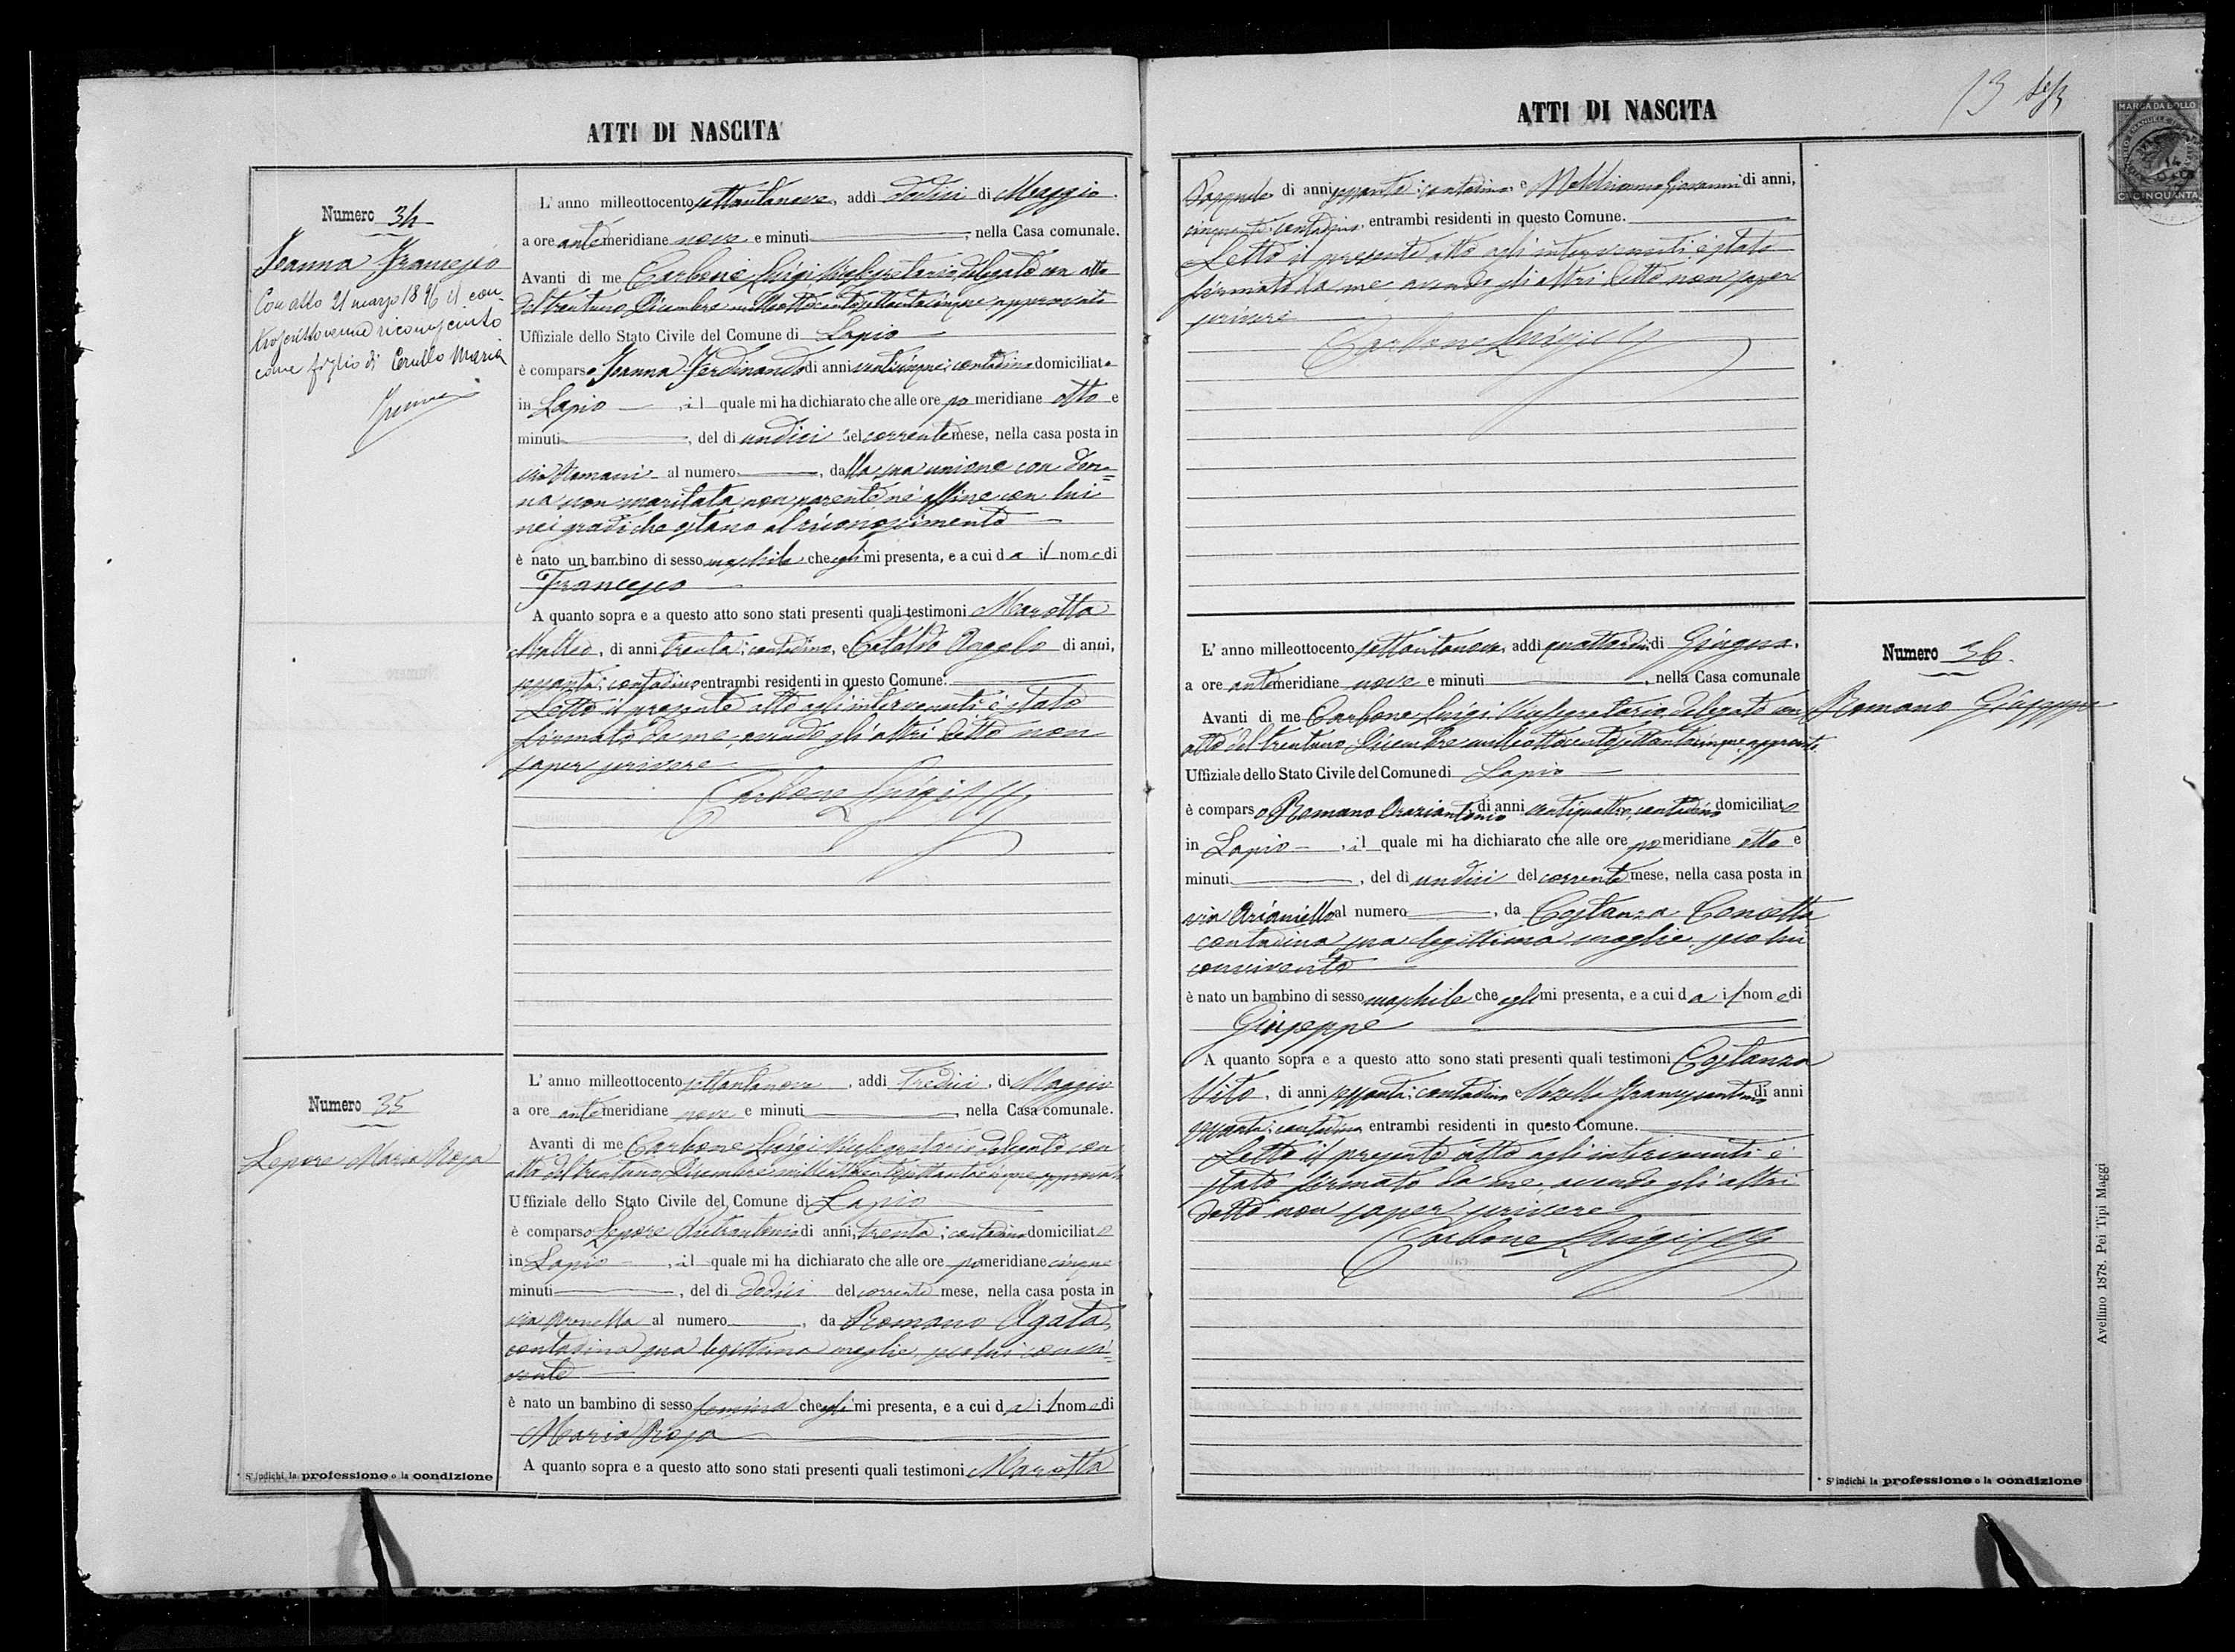 ATTI DI NASCITA
Numero 34
Ioanna Francesco
Con atto 21 marzo 1896 il con-
troscritto venne riconosciuto
come figlio di Cerullo Maria
L'anno milleottocento settantanove, addì dodici di Maggio
a ore antemeridiane nove e minuti , nella Casa comunale.
Avanti di me Carbone Luigi Vicesegretario delegato con atto
del trentuno Dicembre milleottocentosettantacinque approvato
Uffiziale dello Stato Civile del Comune di Lapio
è comparso Ioanna Ferdinando di anni venticinque; contadino domiciliato
in Lapio , il quale mi ha dichiarato che alle ore pomeridiane otto e
minuti , del dì undici del corrente mese, nella casa posta in
via Romani al numero , dalla sua unione con don=
na non maritata non parente nè affine con lui
nei gradi che ostano al riconoscimento
è nato un bambino di sesso maschile che egli mi presenta, e a cui da il nome di
Francesco
A quanto sopra e a questo atto sono stati presenti quali testimoni Marotta
Matteo, di anni trenta; contadino, e Cataldo Angelo di anni,
sessanta; contadino entrambi residenti in questo Comune.
Letto il presente atto agli intervenuti è stato
firmato da me, avendo gli altri detto non
saper scrivere
Carbone Luigi
Numero 35
Lepore Maria Rosa
L'anno milleottocento settantanove, addì tredici, di Maggio
a ore antemeridiane nove e minuti , nella Casa comunale.
Avanti di me Carbone Luigi Vicesegretario delegato con
atto del trentuno Dicembre milleottocentosettantacinque approvato
Uffiziale dello Stato Civile del Comune di Lapio
è comparso Lepore Pietrantonio di anni, trenta; contadino domiciliato
in Lapio , il quale mi ha dichiarato che alle ore pomeridiane cinque
minuti , del dì dodici del corrente mese, nella casa posta in
via al numero , da Romano Agata,
contadina sua legittima moglie, seco lui convi=
vente
è nato un bambino di sesso femineo che egli mi presenta, e a cui da il nome di
Maria Rosa
A quanto sopra e a questo atto sono stati presenti quali testimoni Marotta
* S'indichi la professione o la condizione
ATTI DI NASCITA
13
MARCA DA BOLLO
CINQUANTA
Pasquale di anni sessanta; contadino e Giovanni di anni,
cinquanta; contadino, entrambi residenti in questo Comune.
Letto il presente atto agli intervenuti è stato
firmato da me avendo gli altri detto non saper
scrivere
Carbone Luigi
Numero 36.
Romano Giuseppe
L'anno milleottocento settantanove, addì quattordici di Giugno.
a ore antemeridiane nove e minuti , nella Casa comunale
Avanti di me Carbone Luigi Vicesegretario delegato con
atto del trentuno Dicembre milleottocentosettantacinque approvato.
Uffiziale dello Stato Civile del Comune di Lapio
è comparso Romano Oraziantonio di anni ventiquattro, contadino domiciliato
in Lapio , il quale mi ha dichiarato che alle ore pomeridiane otto e
minuti , del dì undici del corrente mese, nella casa posta in
via Arianiello al numero , da Costanza Concetta
contadina sua legittima moglie, seco lui
convivente
è nato un bambino di sesso maschile che egli mi presenta, e a cui da il nome di
Giuseppe
A quanto sopra e a questo atto sono stati presenti quali testimoni Costanza
Vito, di anni sessanta; contadino e di anni
sessanta; contadino entrambi residenti in questo Comune.
Letto il presente atto agli intervenuti è
stato firmato da me, avendo gli altri
detto non saper scrivere
Carbone Luigi
* S'indichi la professione o la condizione
Avellino 1878. Pei Tipi Maggi